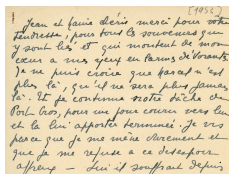 (1952)
Jean et             merci pour votre
tendresse, pour tous les souvenirs que
y sont liés et qui montent de mon
cœur à mes yeux en larmes de
Je ne puis croire que Pascal n'est
plus là, qu'il ne sera plus jamais
là. Et je continue notre tâche de
Port Cros, pour un jour courir vers lui
et la lui apporter terminée. Je vis
parce que je me mène durement et
que je me refuse à ce désespoir
affreux — Lui il souffrait depuis